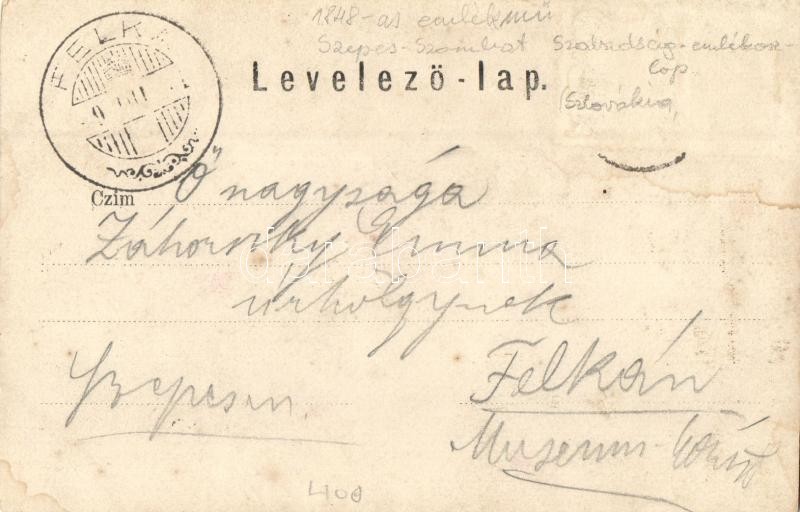 1848-as emlékmű
Szepes-Szombat Szabadság-emlékosz-
lop
(Szlovákia,
FELKA
Levelező-lap.
Czím
Ő nagysága
Záhorszky Emma
úrhölgynek
Felkán
Szepesen
Museum
400